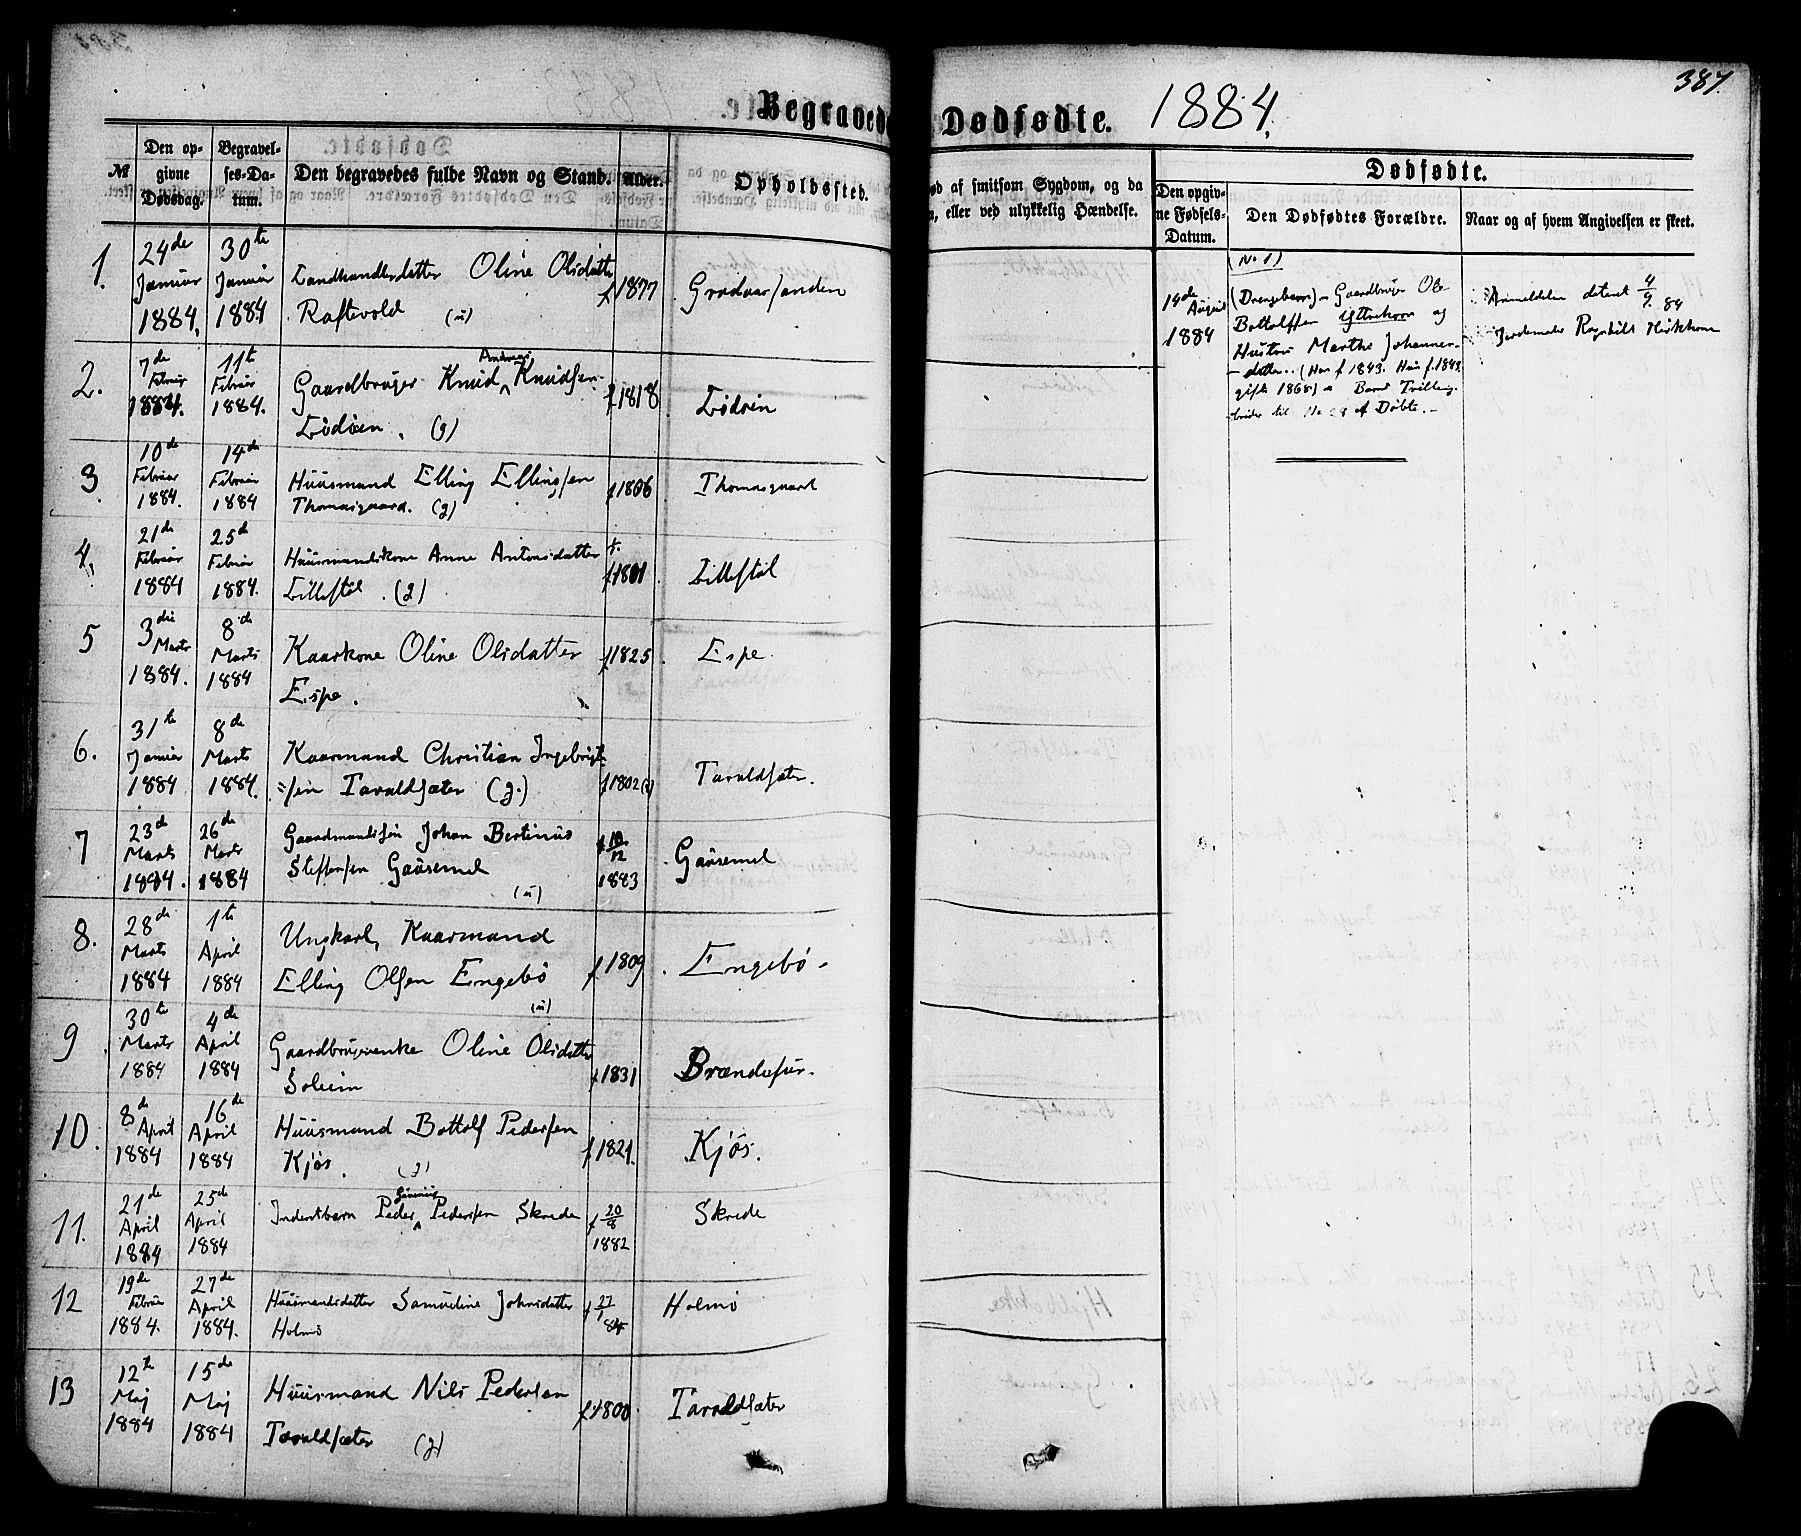 387.
Begravede
Dødfødte. 1884.
№
Den op-
givne
Dødsdag.
Begravel-
ses-Da-
tum.
Den begravedes fulde Navn og Stand.
Alder.
Opholdssted.
Død af smitsom Sygdom, og da
, eller ved ulykkelig Hændelse.
Dødfødte.
Den opgiv-
ne Fødsels-
Datum.
Den Dødfødtes Forældre.
Naar og af hvem Angivelsen er skeet.
1.
24de
Januar
1884.
30te
Januar
1884
Landhandlerdatter Oline Olsdatter
Raftevold (u)
f 1877
Gradaasanden
2.
7de
Februar
1884.
11te
Februar
1884.
Andreas
Gaardbruger Knud Knudsen
Lødøen. (g)
f 1818
Lødøen
3.
10de
Februar
1884.
14de
Februar
1884
Huusmand Elling Ellingsen
Thomasgaard. (g)
f 1806
Thomasgaard
4.
21de
Februar
1884
25de
Februar
1884.
Huusmandskone Anne Antonsdatter
Lillestøl. (g)
f 1801
Lillestøl
5
3die
Marts
1884.
8de
Marts
1884
Kaarkone Oline Olsdatter
Espe.
f 1825
Espe.
6.
31te
Januar
1884
8de
Marts
1884.
Kaarmand Christian Ingebrigt-
=sen Taraldsæter (g.)
f 1802 (3)
Taraldsæter.
7
23de
Marts
1884.
26de
Marts
1884
Gaardmandssøn Johan Bertinus
Steffensen Gaasemel
(u)
f 10/12
1883
Gaasemel
8.
28de
Marts
1884
1te
April
1884
Ungkarl, Kaarmand
Elling Olsen Engebø
(u)
f 1809
Engebø
9
30te
Marts
1884
4de
April
1884
Gaardbrugerenke Oline Olsdatter
Solheim
f 1831
Brændefur.
10.
8de
April
1884
16de
April
1884
Huusmand Bottolf Pedersen
Kjøs. (g)
f 1821.
Kjøs.
11.
21de
April
1884
25de
April
1884
Inderstbarn Peder Pedersen Skrede
f 20/8
1882
Skrede
12
19de
Februar
1884.
27de
April
1884.
Huusmandsdatter Samueline Johnsdatter
Holmø
f 27/1
84
Holmø
13
12te
Maj
1884
15de
Maj
1884
Huusmand Nils Pedersen
Taraldsæter (g)
f 1800
Taraldsæter
(No 1)
14de
August
1884
(Drengebarn) - Gaardbruger Ole
Bottolfsen Yttrehorn og
Hustru Marthe Johannes-
datter. (Han f. 1843. Hun f. 1842,
gifte 1868) Barnet Tvilling-
broder til No 29 af Døbte.
Anmeldelse dateret 4/9 84
Jordemoder Ragnhild